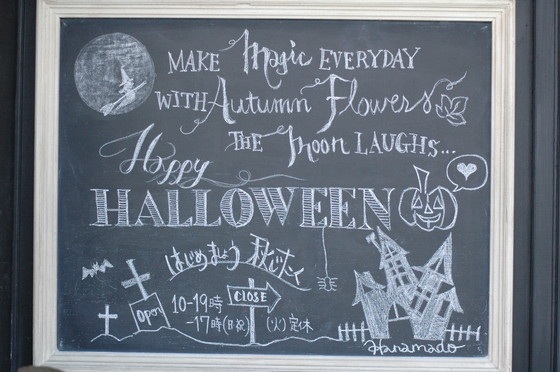 MAKE Magic EVERYDAY
WITH Autumn Flowers
THE Moon LAUGHS...
Happy
HALLOWEEN
はじめましょう 秋じたく
OPEN 10-19時 CLOSE
-17時(日祝) (火)定休
Hanamado